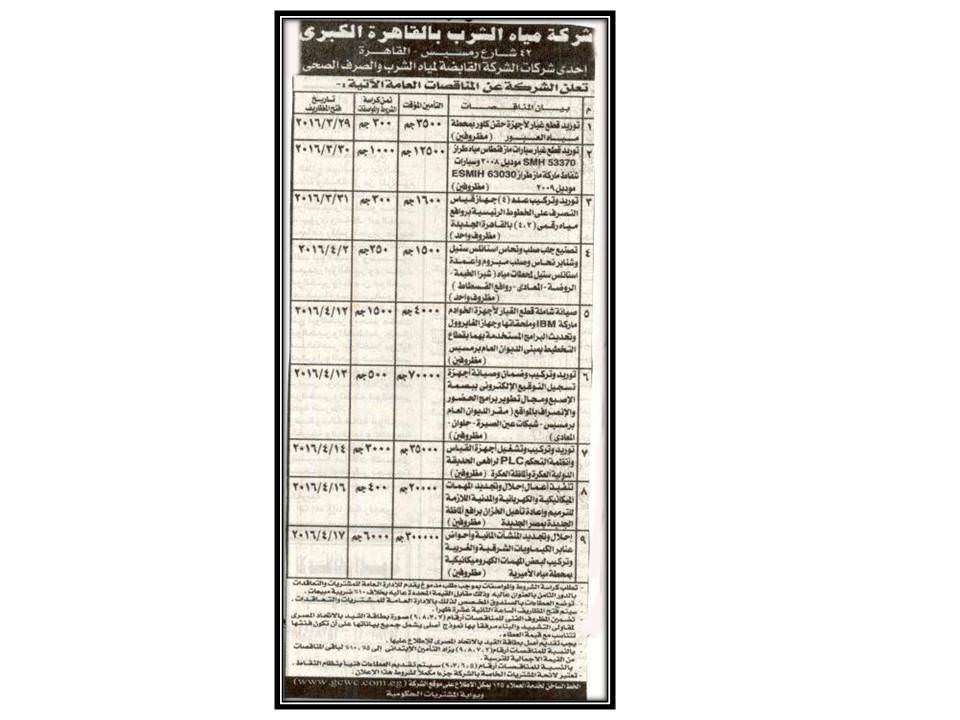 شركة مياه الشرب بالقاهرة الكبرى
٤٢ شارع رمسيس - القاهرة
إحدى شركات الشركة القابضة لمياه الشرب والصرف الصحى
تعلن الشركة عن المناقصات العامة الآتية :-
م بيان المناقصات التأمين المؤقت ثمن كراسة الشروط والمواصفات تاريخ فتح المظاريف
١ توريد قطع غيار لأجهزة حقن كلور بمحطة ٣٥٠٠ جم ٣٠٠ جم ٢٠١٦/٣/٢٩
مياه العبور (مظروفين)
٢ توريد قطع غيار سيارات ماز فنطاس مياه طراز ١٢٥٠٠ جم ١٠٠٠ جم ٢٠١٦/٣/٣٠
SMH 53370 موديل ٢٠٠٨ وسيارات
شفاط ماركة ماز طراز ESMIH 63030
موديل ٢٠٠٩ (مظروفين)
٣ توريد وتركيب عدد (٤) جهاز قياس ١٦٠٠ جم ٣٠٠ جم ٢٠١٦/٣/٣١
التصرف على الخطوط الرئيسية بروافع
مياه رقمى (٤،٢) بالقاهرة الجديدة
(مظروف واحد)
٤ تصنيع جلب صلب ونحاس استانلس ستيل ١٥٠٠ جم ٢٥٠ جم ٢٠١٦/٤/٢
وشنابر نحاس وصلب مبروم وأعمدة
استانلس ستيل لمحطات مياه (شبرا الخيمة -
الروضة - المعادى - روافع الفسطاط)
(مظروف واحد)
٥ صيانة شاملة قطع الغيار لأجهزة الخوادم ٤٠٠٠ جم ١٥٠٠ جم ٢٠١٦/٤/١٢
ماركة IBM وملحقاتها وجهاز الفايروول
وتحديث البرامج المستخدمة بهما بقطاع
التخطيط بمبنى الديوان العام برمسيس
(مظروفين)
٦ توريد وتركيب وضمان وصيانة أجهزة ٧٠٠٠٠ جم ٥٠٠ جم ٢٠١٦/٤/١٣
تسجيل التوقيع الإلكترونى ببصمة
الإصبع ومجال تطوير برامج الحضور
والإنصراف بالمواقع (مقر الديوان العام
برمسيس - شبكات عين الصيرة - حلوان -
المعادى) (مظروفين)
٧ توريد وتركيب وتشغيل أجهزة القياس ٣٥٠٠٠ جم ٣٠٠٠ جم ٢٠١٦/٤/١٤
وأنظمة التحكم PLC لرافعى الحديقة
الدولية العكرة وألماظة العكرة (مظروفين)
٨ تنفيذ أعمال إحلال وتجديد المهمات ٢٠٠٠٠ جم ٤٠٠ جم ٢٠١٦/٤/١٦
الميكانيكية والكهربائية والمدنية اللازمة
للترميم وإعادة تأهيل الخزان برافع ألماظة
الجديدة بمصر الجديدة (مظروفين)
٩ إحلال وتجديد المنشآت المائية وأحواض ٣٠٠٠٠٠ جم ٦٠٠٠ جم ٢٠١٦/٤/١٧
عنابر الكيماويات الشرقية والغربية
وتركيب لبعض المهمات الكهروميكانيكية
بمحطة مياه الأميرية (مظروفين)
تطلب كراسة الشروط والمواصفات بموجب طلب مدموغ يقدم للإدارة العامة للمشتريات والتعاقدات
بالدور الثامن بالعنوان عاليه وذلك مقابل القيمة المحددة عاليه بخلاف ١٠٪ ضريبة مبيعات.
توضع العطاءات بالصندوق المخصص لذلك بالإدارة العامة للمشتريات والتعاقدات.
سيتم فتح المظاريف الساعة الثانية عشرة ظهراً.
تضمين المظروف الفنى للمناقصات أرقام (٩،٨،٧،٢) صورة بطاقة القيد بالاتحاد المصرى
لمقاولى التشييد والبناء مرفقا بها نموذج أصلى يشمل جميع بياناتها على أن تكون فئتها
تتناسب مع قيمة العطاء.
يجب تقديم أصل بطاقة القيد بالاتحاد المصرى للإطلاع عليها.
بالنسبة للمناقصات أرقام يزاد التأمين الإبتدائى إلى ٥٪، ١٠٪ لباقى المناقصات
من القيمة الاجمالية للترسية.
بالنسبة للمناقصات أرقام سيتم تقديم العطاءات فنياً بنظام النقاط.
تعتبر لائحة المشتريات الخاصة بالشركة جزءاً مكملاً لشروط هذا الاعلان.
الخط الساخن لخدمة العملاء ١٢٥ يمكن الاطلاع على موقع الشركة (www.gcwc.com.eg)
وبوابة المشتريات الحكومية